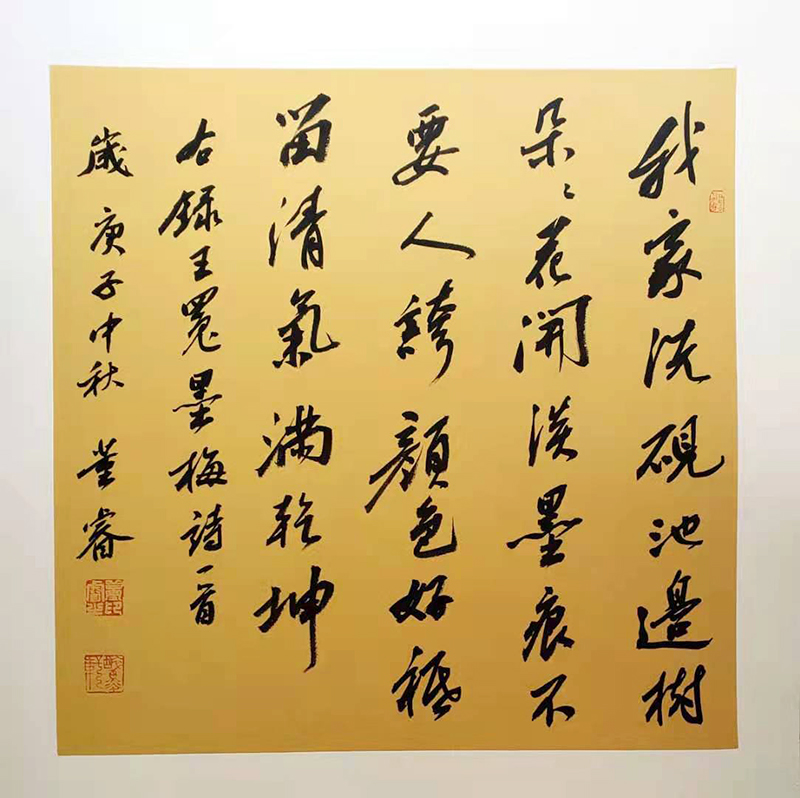 我家洗硯池邊樹
朵〻花開淡墨痕不
要人誇顏色好秖
留清氣滿乾坤
右錄王冕墨梅詩一首
歲庚子中秋董睿